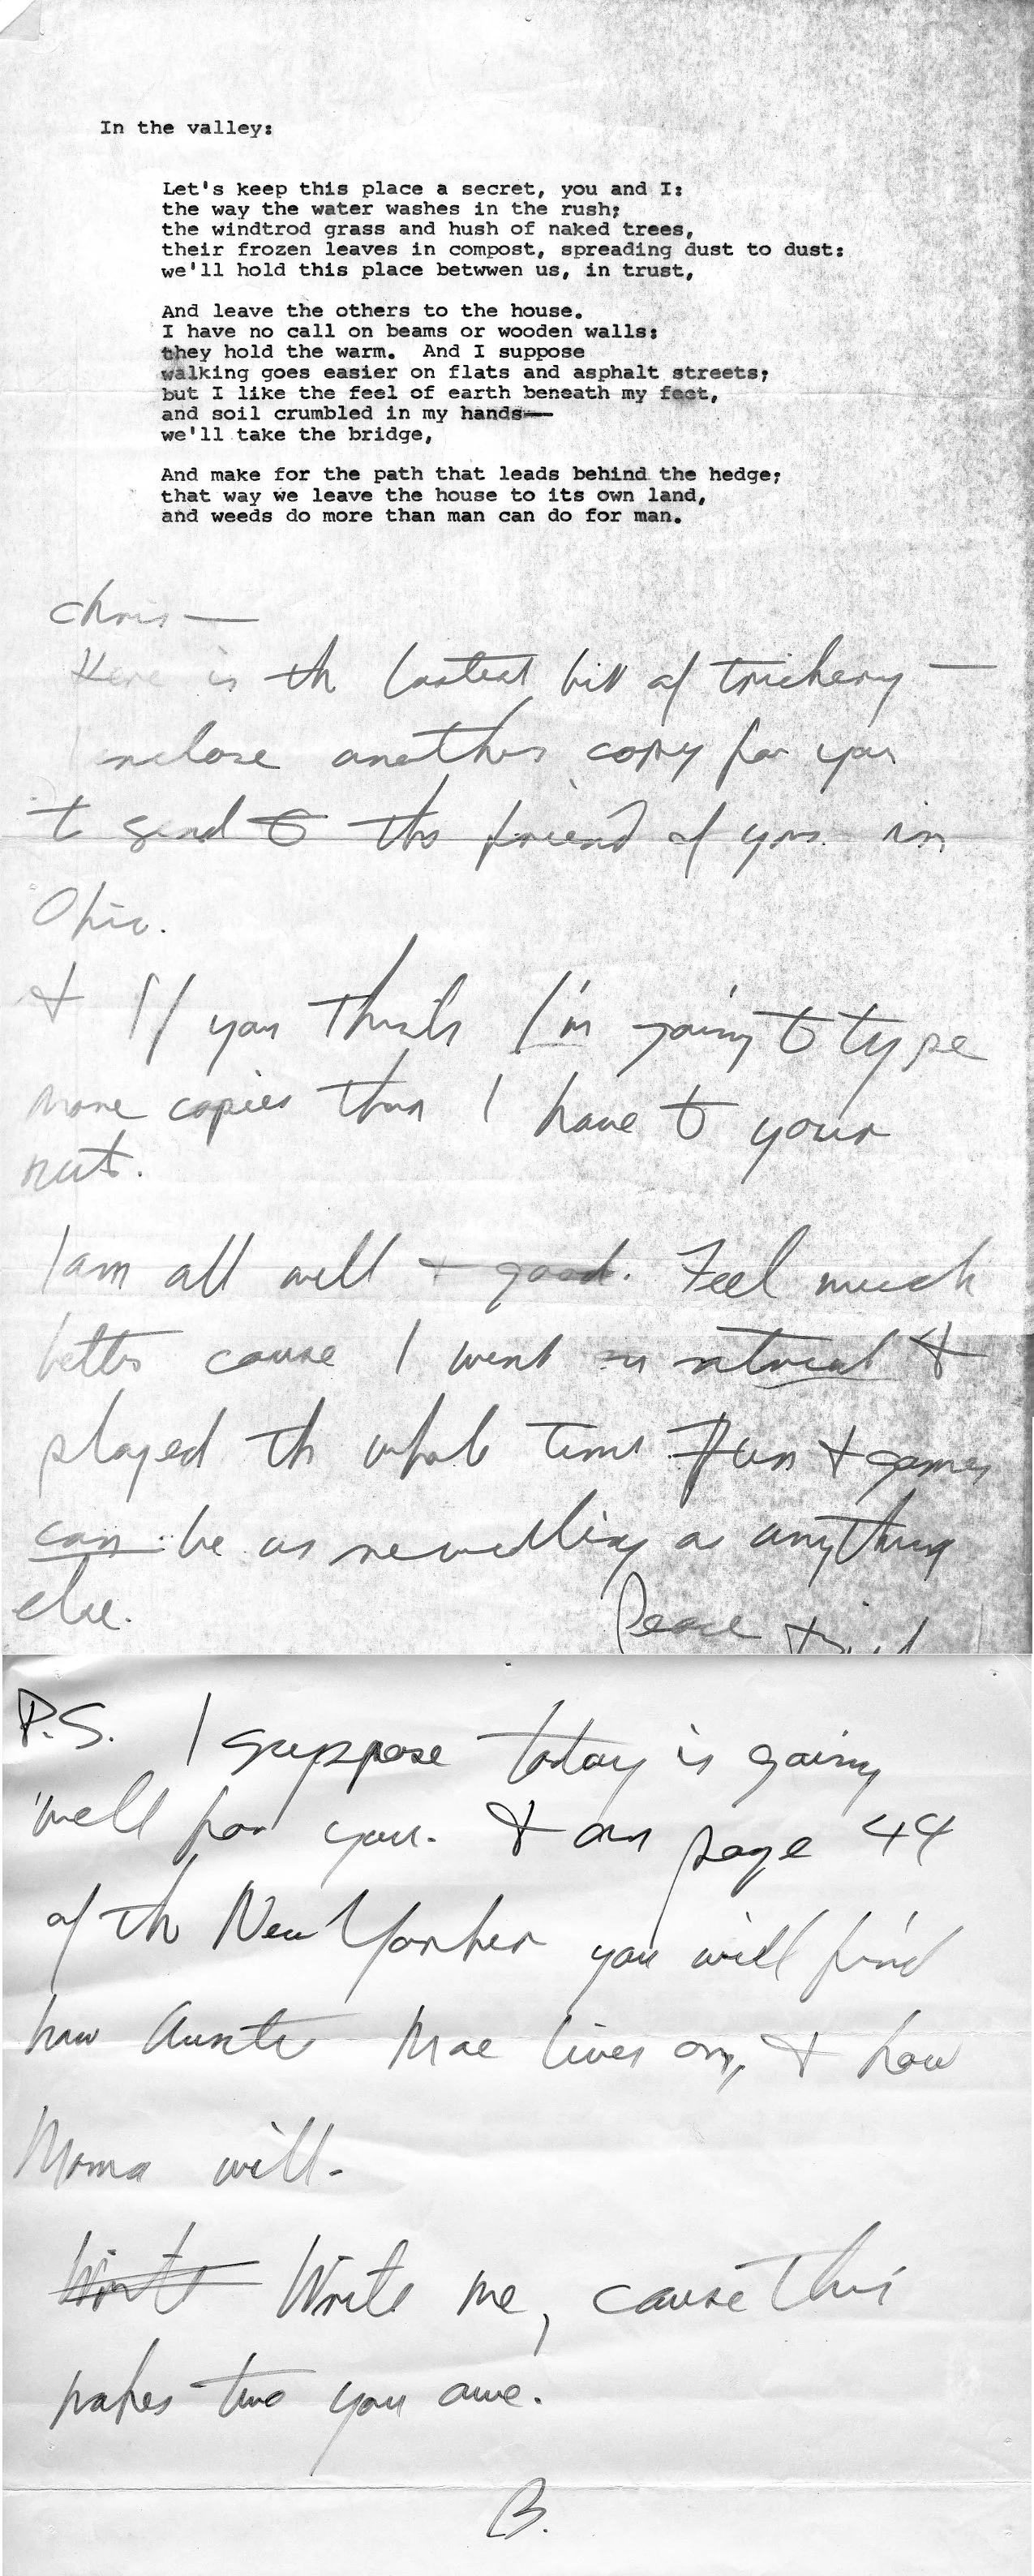 In the valley:
Let's keep this place a secret, you and I:
the way the water washes in the rush;
the windtrod grass and hush of naked trees,
their frozen leaves in compost, spreading dust to dust:
we'll hold this place betwwen us, in trust,
And leave the others to the house.
I have no call on beams or wooden walls:
they hold the warm.  And I suppose
walking goes easier on flats and asphalt streets;
but I like the feel of earth beneath my feet,
and soil crumbled in my hands—
we'll take the bridge,
And make for the path that leads behind the hedge;
that way we leave the house to its own land,
and weeds do more than man can do for man.
chris —
Here is th lastest bit of trickery —
I enclose another copy for you
to send to the friend of yours in
Ohio.
& If you think I'm going to type
more copies than I have to your
nut.
I am all well & good. Feel much
better cause I went &
played th whole time. Fun & games
can be as rewarding as anything
else.
Peace &
P.S. I suppose today is going
well for you. & on page 44
of th New Yorker you will find
how Aunte Mae lives on, & how
Moma will.
Write Write me, cause this
makes two you owe.
B.